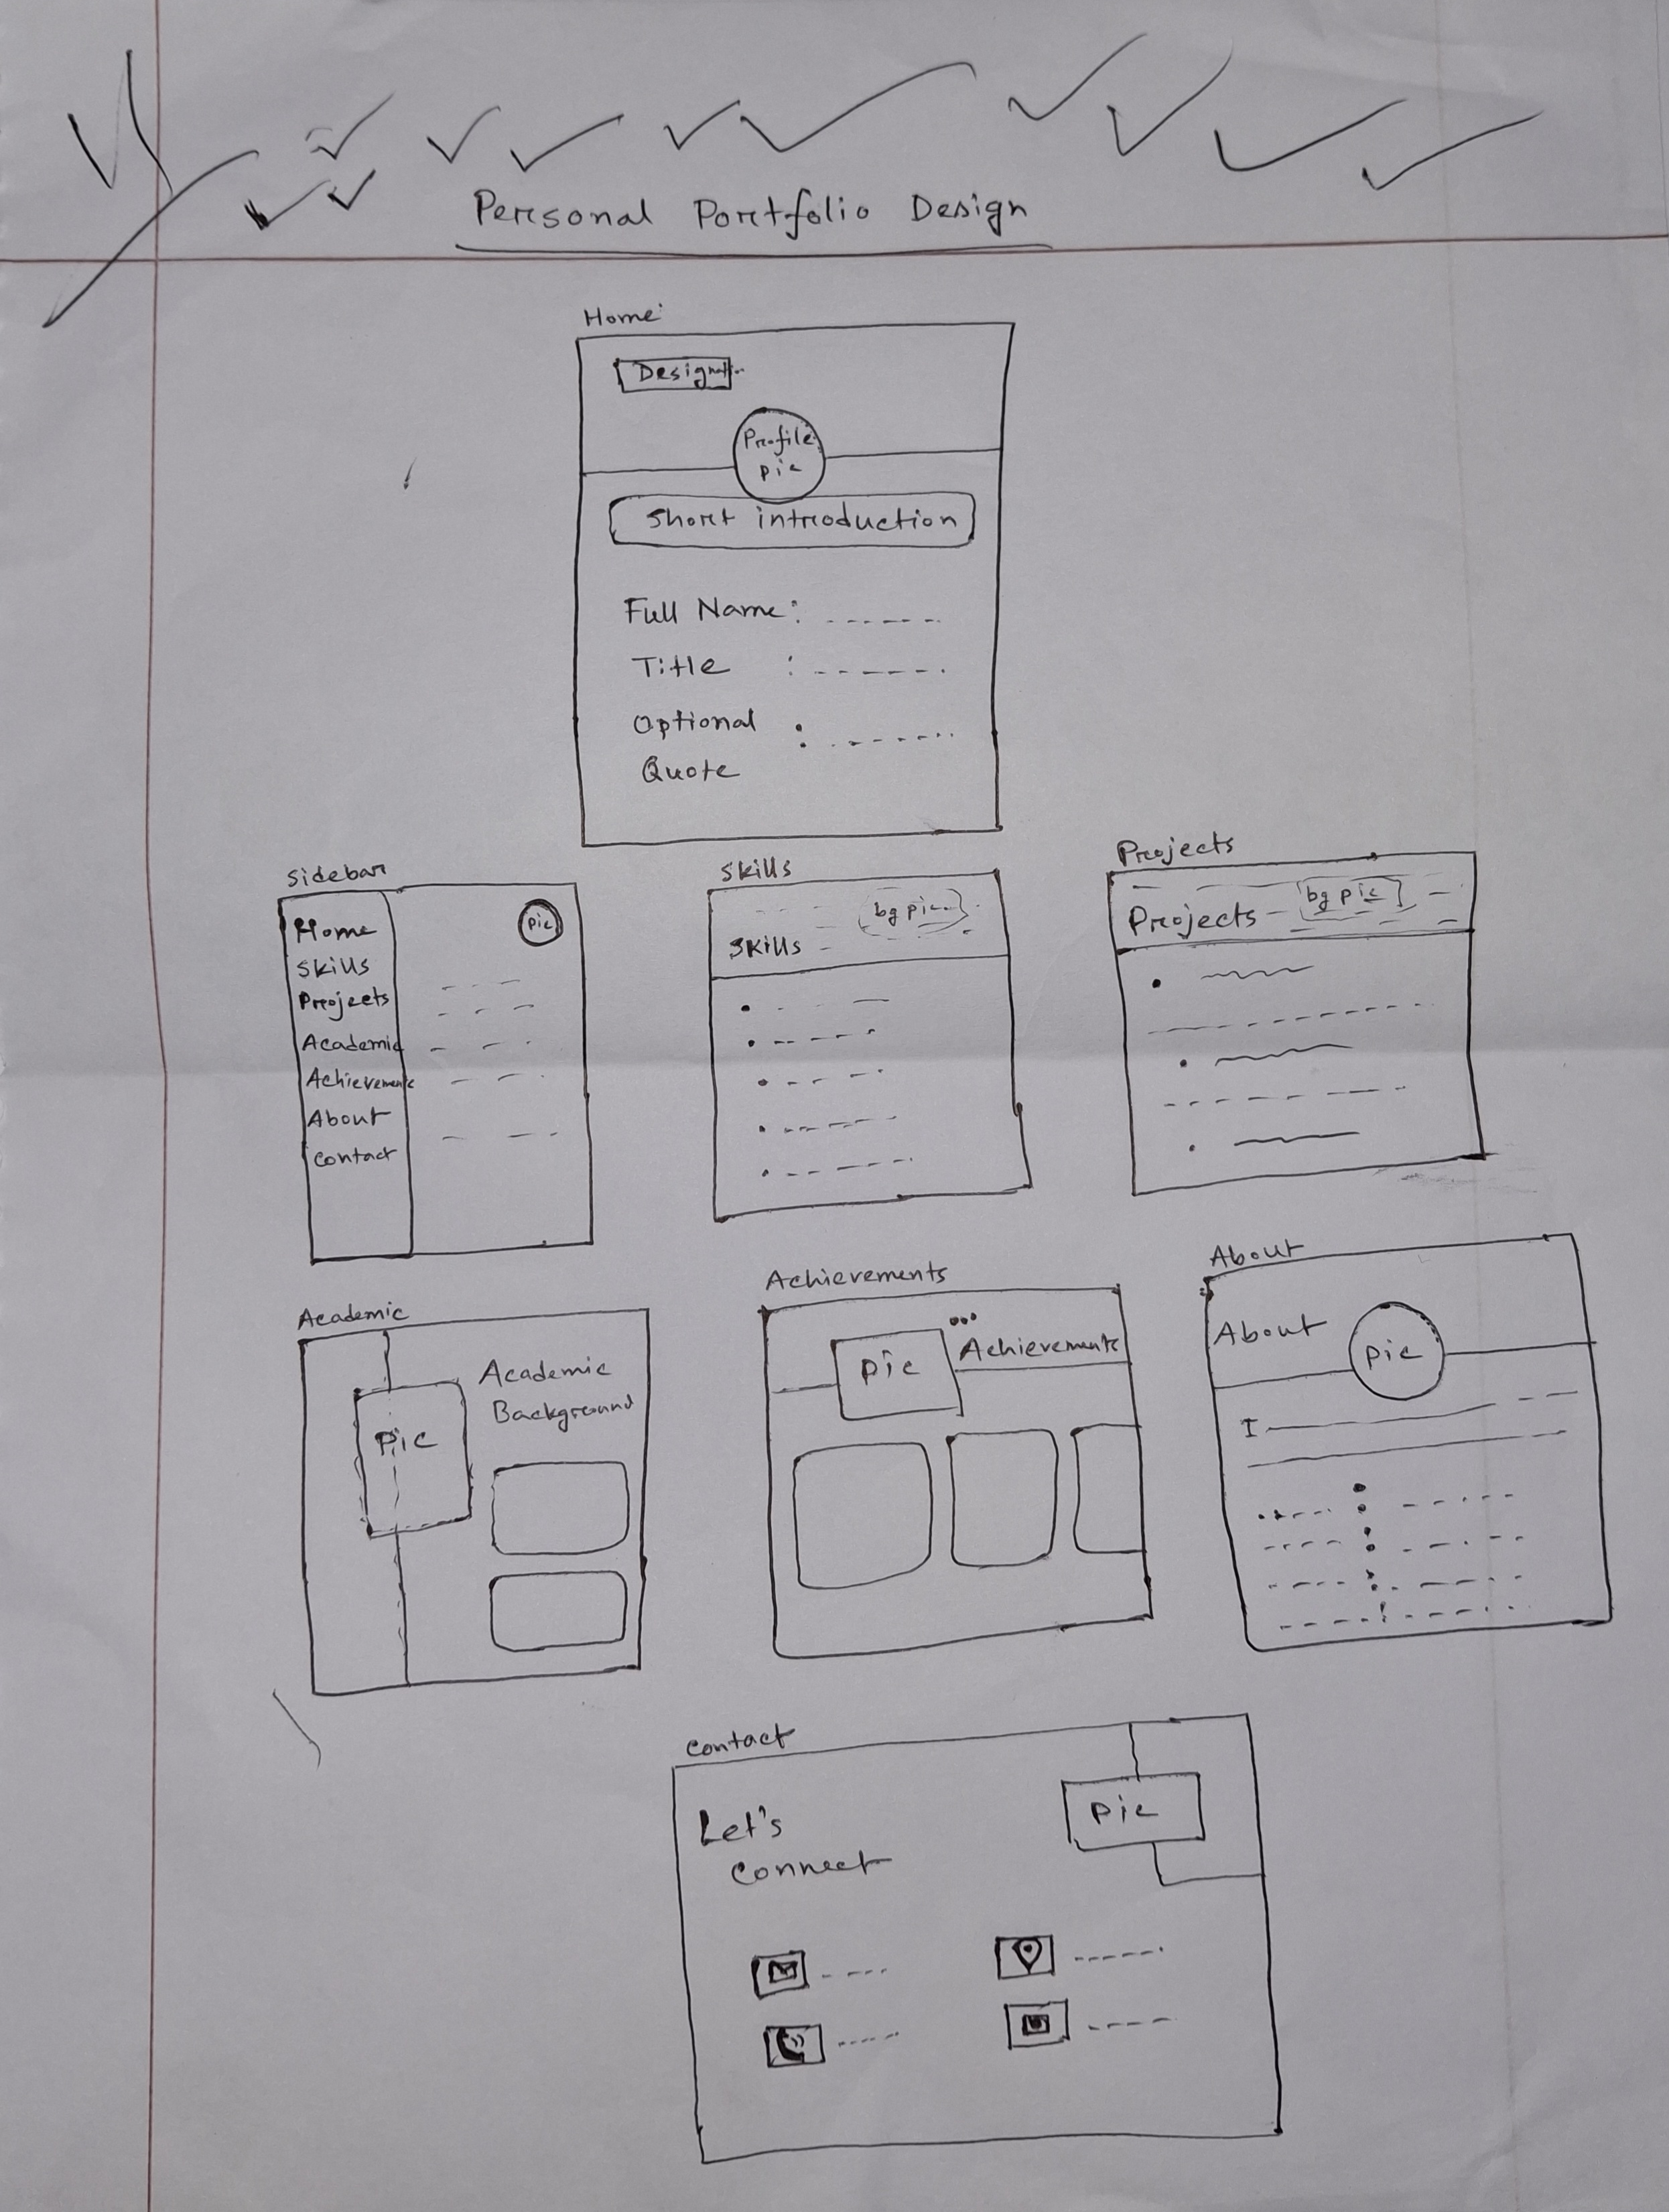 Personal Portfolio Design
Home
Profile
Pic
Short introduction
Full Name :
Title :
Optional :
Quote
Sidebar
Home
Skills
Projects
Academic
Achievements
About
Contact
Pic
Skills
bg pic
Skills
Projects
bg pic
Projects
Academic
Academic
Background
Pic
Achievements
Pic
Achievements
About
About
Pic
I
Contact
Let's
Connect
Pic